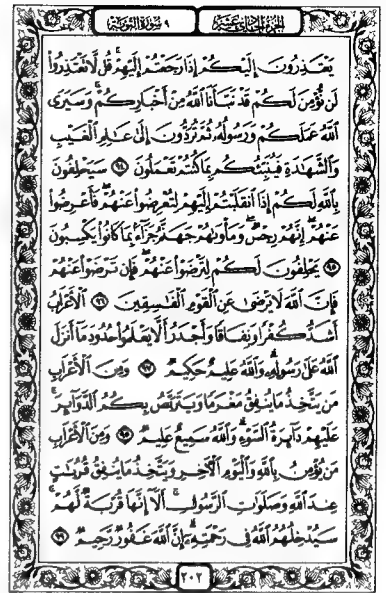 الجزء الحادي عشر ٩ سورة التوبة
يَعْتَذِرُونَ إِلَيْكُمْ إِذَا رَجَعْتُمْ إِلَيْهِمْ ۚ قُل لَّا تَعْتَذِرُوا۟
لَن نُّؤْمِنَ لَكُمْ قَدْ نَبَّأَنَا ٱللَّهُ مِنْ أَخْبَارِكُمْ ۚ وَسَيَرَى
ٱللَّهُ عَمَلَكُمْ وَرَسُولُهُۥ ثُمَّ تُرَدُّونَ إِلَىٰ عَٰلِمِ ٱلْغَيْبِ
وَٱلشَّهَٰدَةِ فَيُنَبِّئُكُم بِمَا كُنتُمْ تَعْمَلُونَ ٩٤ سَيَحْلِفُونَ
بِٱللَّهِ لَكُمْ إِذَا ٱنقَلَبْتُمْ إِلَيْهِمْ لِتُعْرِضُوا۟ عَنْهُمْ ۖ فَأَعْرِضُوا۟
عَنْهُمْ ۖ إِنَّهُمْ رِجْسٌ ۖ وَمَأْوَىٰهُمْ جَهَنَّمُ جَزَآءًۢ بِمَا كَانُوا۟ يَكْسِبُونَ
٩٥ يَحْلِفُونَ لَكُمْ لِتَرْضَوْا۟ عَنْهُمْ ۖ فَإِن تَرْضَوْا۟ عَنْهُمْ
فَإِنَّ ٱللَّهَ لَا يَرْضَىٰ عَنِ ٱلْقَوْمِ ٱلْفَٰسِقِينَ ٩٦ ٱلْأَعْرَابُ
أَشَدُّ كُفْرًا وَنِفَاقًا وَأَجْدَرُ أَلَّا يَعْلَمُوا۟ حُدُودَ مَآ أَنزَلَ
ٱللَّهُ عَلَىٰ رَسُولِهِۦ ۗ وَٱللَّهُ عَلِيمٌ حَكِيمٌ ٩٧ وَمِنَ ٱلْأَعْرَابِ
مَن يَتَّخِذُ مَا يُنفِقُ مَغْرَمًا وَيَتَرَبَّصُ بِكُمُ ٱلدَّوَآئِرَ ۚ
عَلَيْهِمْ دَآئِرَةُ ٱلسَّوْءِ ۗ وَٱللَّهُ سَمِيعٌ عَلِيمٌ ٩٨ وَمِنَ ٱلْأَعْرَابِ
مَن يُؤْمِنُ بِٱللَّهِ وَٱلْيَوْمِ ٱلْءَاخِرِ وَيَتَّخِذُ مَا يُنفِقُ قُرُبَٰتٍ
عِندَ ٱللَّهِ وَصَلَوَٰتِ ٱلرَّسُولِ ۚ أَلَآ إِنَّهَا قُرْبَةٌ لَّهُمْ ۚ
سَيُدْخِلُهُمُ ٱللَّهُ فِى رَحْمَتِهِۦٓ ۗ إِنَّ ٱللَّهَ غَفُورٌ رَّحِيمٌ ٩٩
٢٠٢